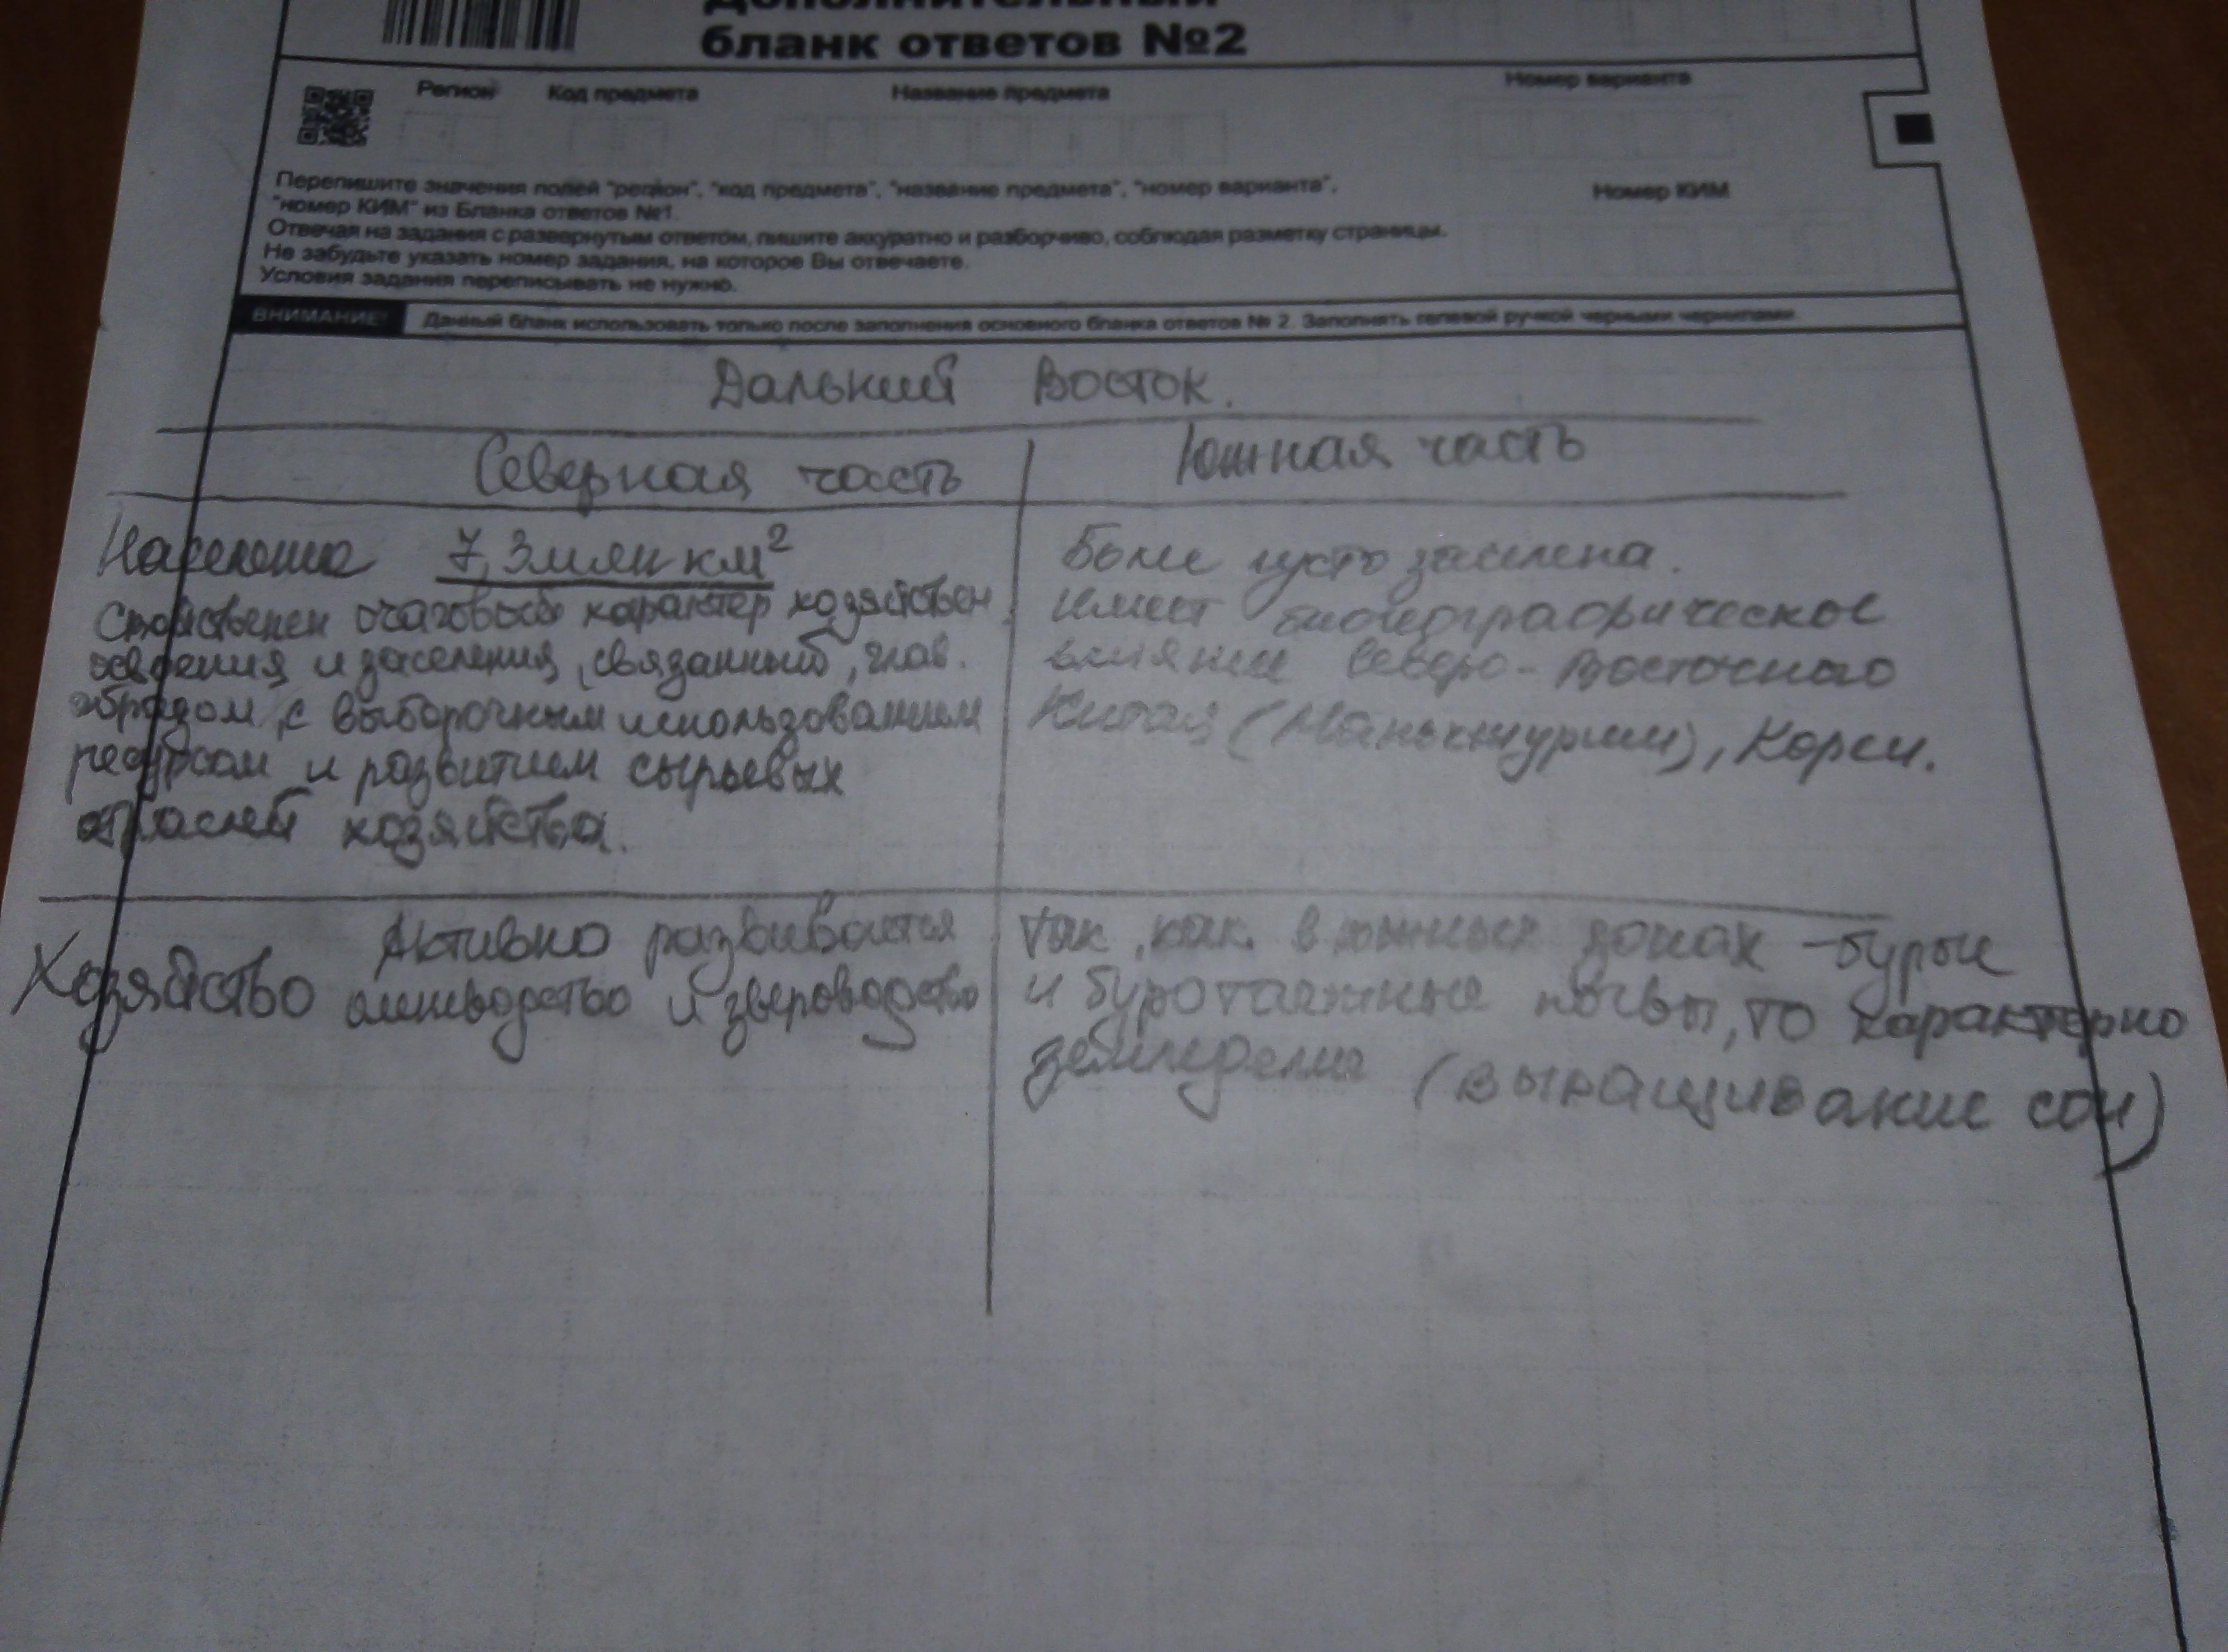 Дополнительный
бланк ответов №2
Регион Код предмета Название предмета Номер варианта
Перепишите значения полей "регион", "код предмета", "название предмета", "номер варианта",
"номер КИМ" из Бланка ответов №1.
Номер КИМ
Отвечая на задания с развернутым ответом, пишите аккуратно и разборчиво, соблюдая разметку страницы.
Не забудьте указать номер задания, на которое Вы отвечаете.
Условия задания переписывать не нужно.
ВНИМАНИЕ! Данный бланк использовать только после заполнения основного бланка ответов № 2. Заполнять гелевой ручкой черными чернилами.
Дальний Восток.
Северная часть
Южная часть
Население 7,3 млн км²
Свойственен очаговый характер хозяйствен.
освоения и заселения, связанный, глав.
образом, с выборочным использованием
ресурсов и развитием сырьевых
отраслей хозяйства.
Более густо заселена.
Имеет биогеографическое
влияние Северо-Восточного
Китая (Маньчжурии), Кореи.
Хозяйство
Активно развивается
оленеводство и звероводство
Так, как в южных зонах - бурые
и буротаежные почвы, то характерно
земледелие (выращивание сои)